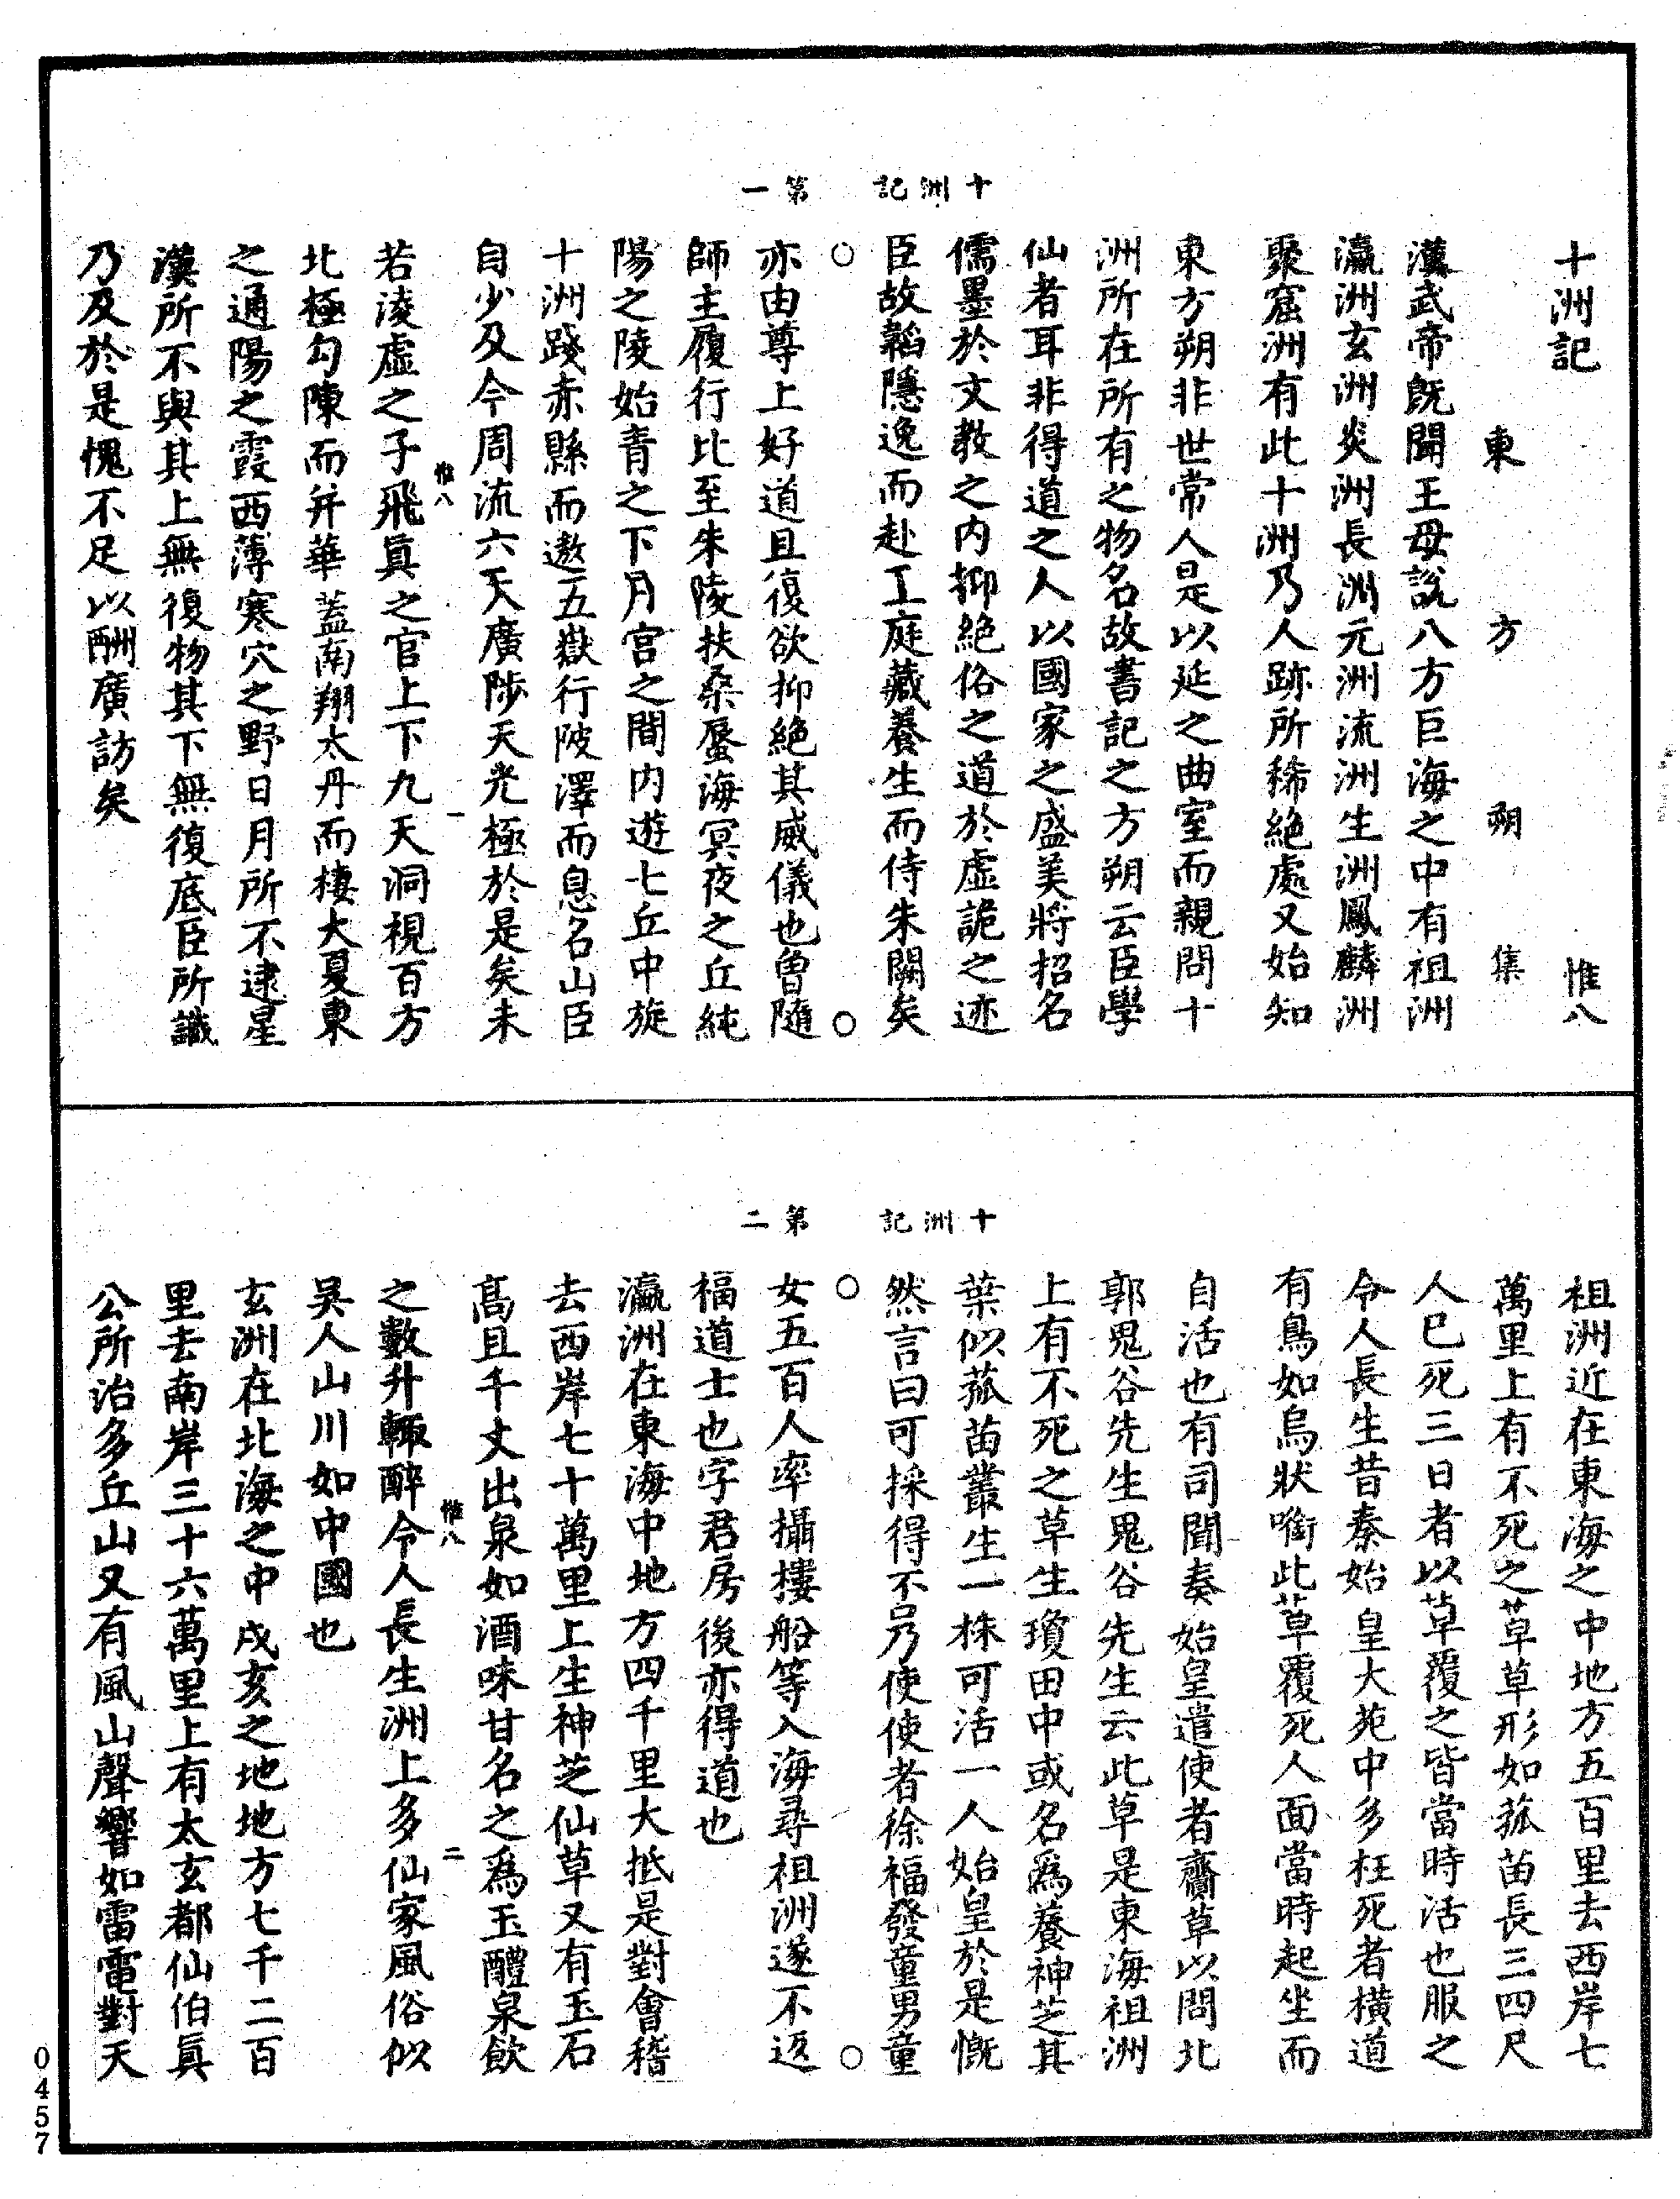 十洲記 惟八
東方朔集
漢武帝旣聞王母說八方巨海之中有祖洲
瀛洲玄洲炎洲長洲元洲流洲生洲鳳麟洲
聚窟洲有此十洲乃人跡所稀絕處又始知
東方朔非世常人是以延之曲室而親問十
洲所在所有之物名故書記之方朔云臣學
仙者耳非得道之人以國家之盛美將招名
儒墨於文教之內抑絕俗之道於虛詭之迹
臣故韜隱逸而赴王庭藏養生而侍朱闕矣
十洲記 第一
亦由尊上好道且復欲抑絕其威儀也曾隨
師主履行比至朱陵扶桑蜃海冥夜之丘純
陽之陵始青之下月宮之間內遊七丘中旋
十洲踐赤縣而遨五嶽行陂澤而息名山臣
自少及今周流六天廣陟天光極於是矣未
惟八 一
若淩虛之子飛眞之官上下九天洞視百方
北極勾陳而并華蓋南翔太丹而棲大夏東
之通陽之霞西薄寒穴之野日月所不逮星
漢所不與其上無復物其下無復底臣所識
乃及於是愧不足以酬廣訪矣
祖洲近在東海之中地方五百里去西岸七
萬里上有不死之草草形如菰苗長三四尺
人已死三日者以草覆之皆當時活也服之
令人長生昔秦始皇大苑中多枉死者橫道
有鳥如烏狀㗸此草覆死人面當時起坐而
自活也有司聞奏始皇遣使者齎草以問北
郭鬼谷先生鬼谷先生云此草是東海祖洲
上有不死之草生瓊田中或名爲養神芝其
葉似菰苗叢生一株可活一人始皇於是慨
然言曰可採得不乃使使者徐福發童男童
十洲記 第二
女五百人率攝樓船等入海尋祖洲遂不返
福道士也字君房後亦得道也
瀛洲在東海中地方四千里大抵是對會稽
去西岸七十萬里上生神芝仙草又有玉石
高且千丈出泉如酒味甘名之爲玉醴泉飲
惟八 二
之數升輒醉令人長生洲上多仙家風俗似
吳人山川如中國也
玄洲在北海之中戌亥之地地方七千二百
里去南岸三十六萬里上有太玄都仙伯眞
公所治多丘山又有風山聲響如雷電對天
0457